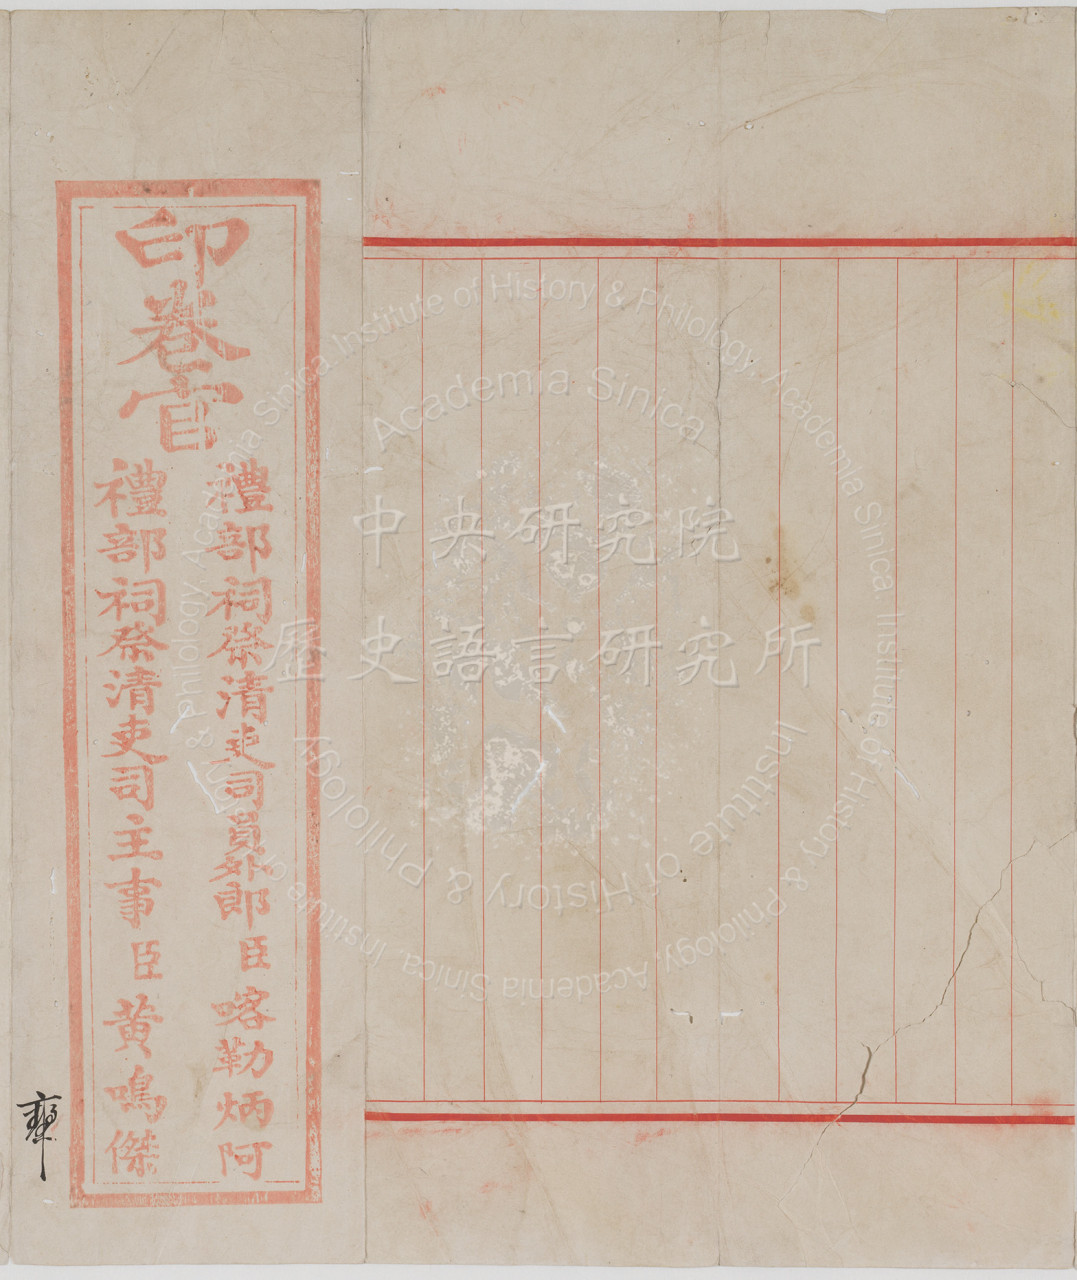 印卷官
禮部祠祭清吏司員外郎臣喀勒炳阿
禮部祠祭清吏司主事臣黄鳴傑
中央研究院
歷史語言研究所
Academia Sinica
Institute of History & Philology, Academia Sinica. Institute of History & Philology, Academia Sinica. Institute of History & Philology, Academia Sinica.
Institute of History & Philology